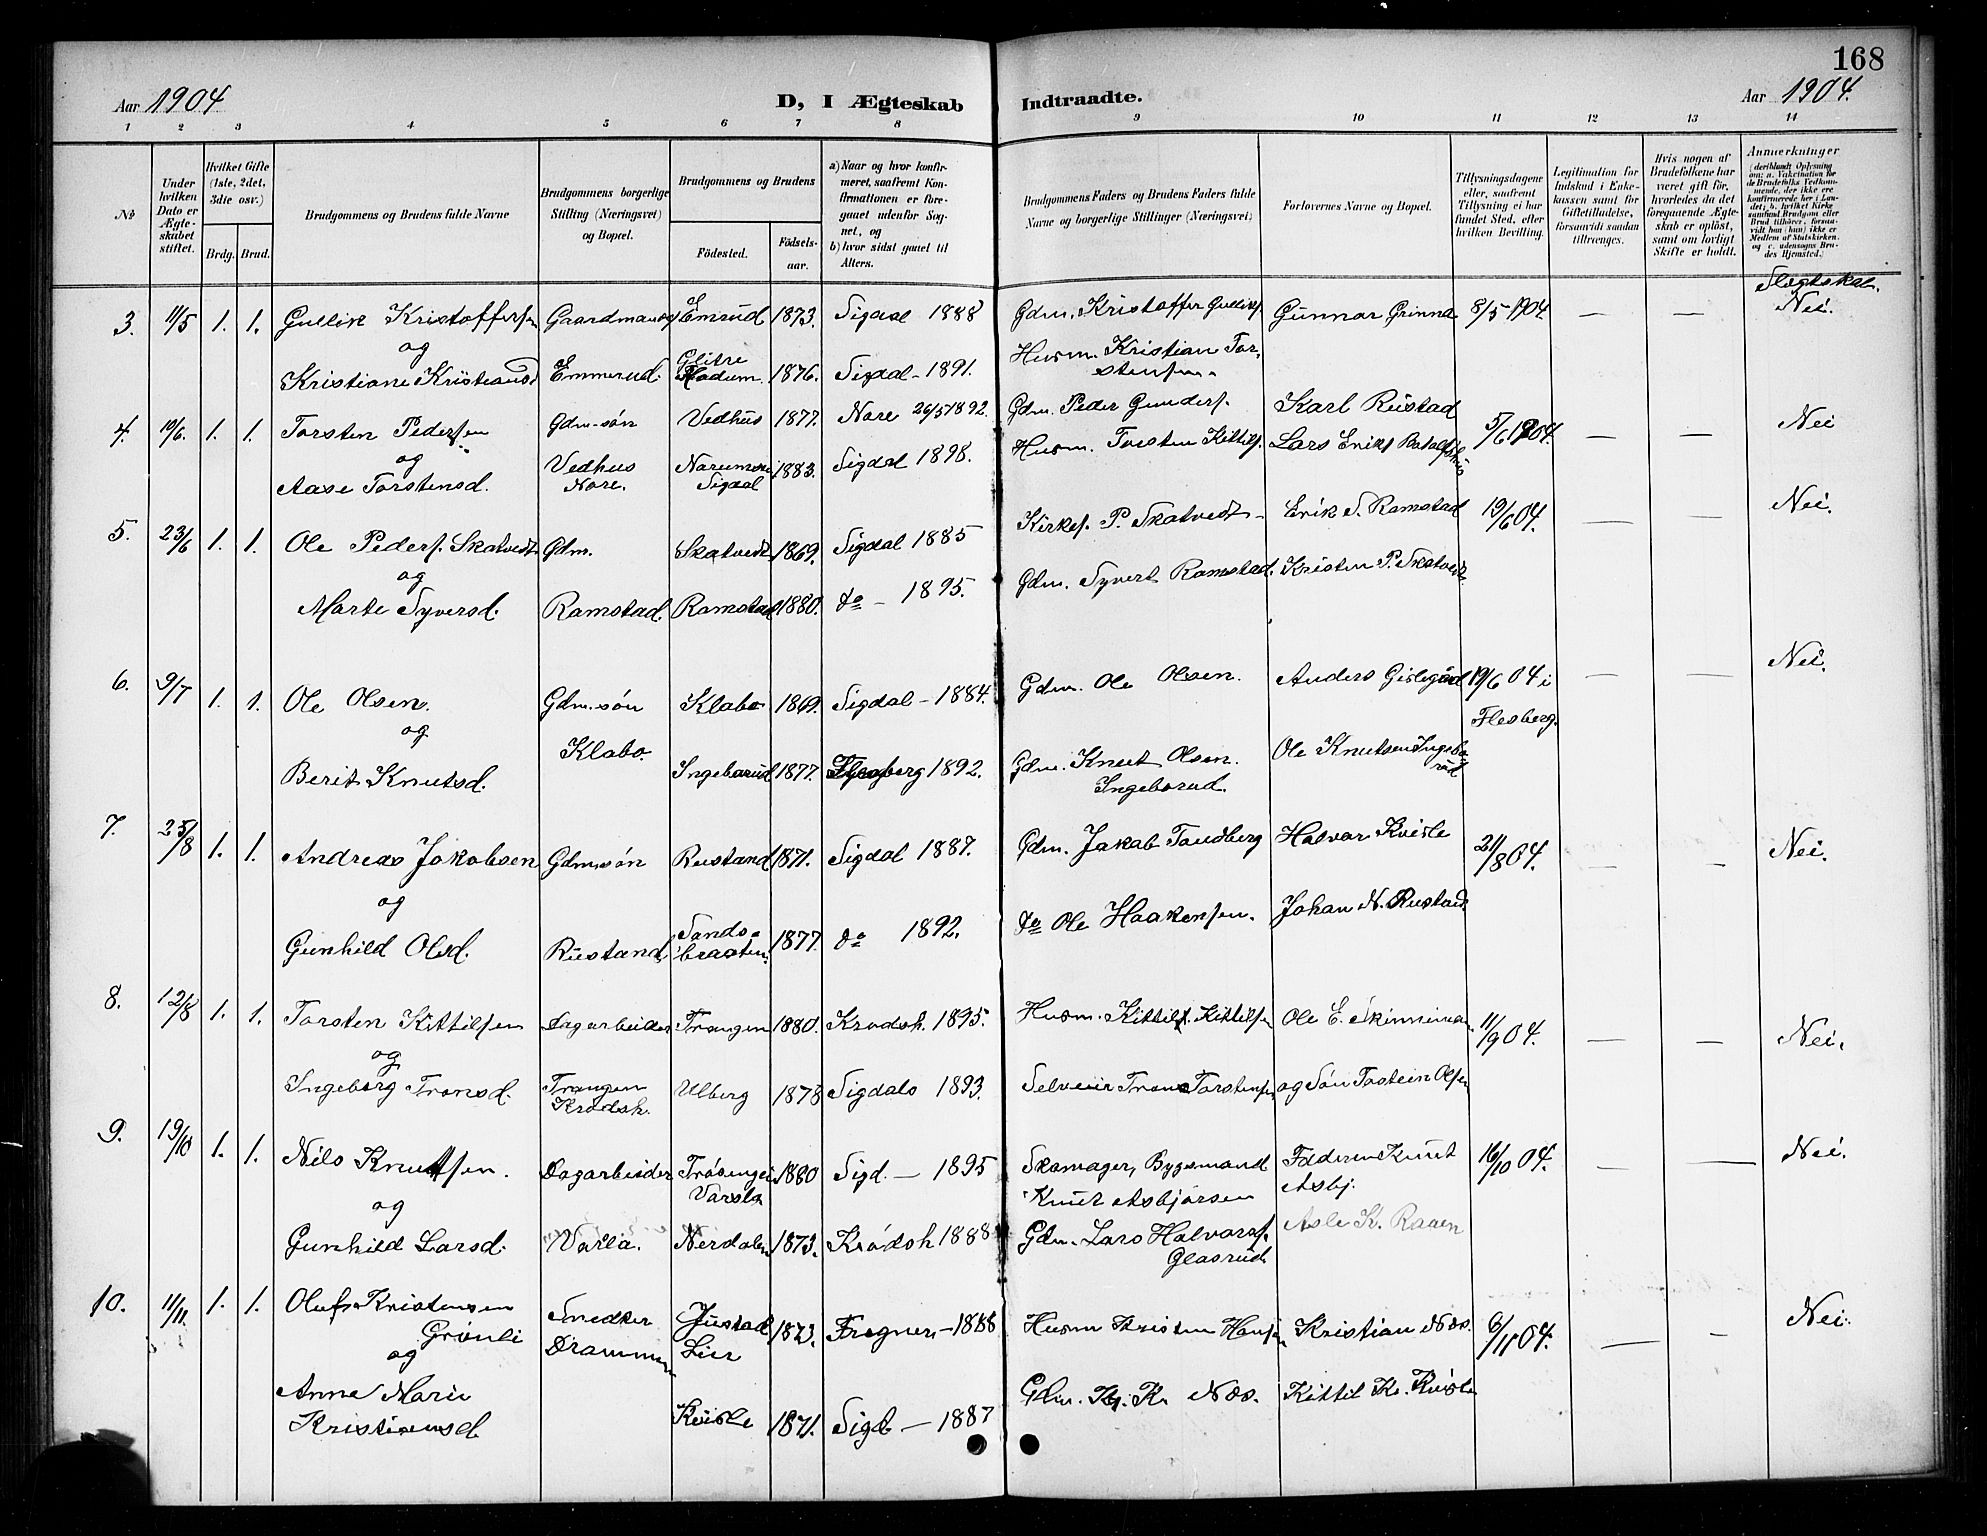 168
Aar 1904
D, I Ægteskab
Indtraadte.
Aar 1904.
1 2 3 4 5 6 7 8 9 10 11 12 13 14
No
Under hvilken Dato er Ægteskabet stiftet.
Hvilket Gifte (1ste, 2det, 3die osv.)
Brdg. Brud.
Brudgommens og Brudens fulde Navne
Brudgommens borgerlige Stilling (Næringsvei) og Bopæl.
Brudgommens og Brudens
Födested.
Födsels-aar.
a) Naar og hvor konfirmeret, saafremt Konfirmationen er foregaaet udenfor Sognet, og
b) hvor sidst gaaet til Alters.
Brudgommens Faders og Brudens Faders fulde Navne og borgerlige Stillinger (Næringsvei)
Forlovernes Navne og Bopæl.
Tillysningsdagene eller, saafremt Tillysning ei har fundet Sted, efter hvilken Bevilling.
Legitimation for Indskud i Enkekassen samt for Giftetilladelse, forsaavidt saadan tiltrænges.
Hvis nogen af Brudefolkene har været gift før, hvorledes da det foregaaende Ægteskab er oplöst, samt om lovligt Skifte er holdt.
Anmerkninger
Slegtskab.
3. 11/5 1. 1. Gullik Kristoffersen Gaardmand Emrud 1873. Sigdal 1888 Gdm. Kristoffer Gulliks. Gunnar Grinna 8/5 1904 — — Nei.
og
Kristiane Kristiansd. Emmerud. Glitre Modum. 1876. Sigdal - 1891. Husm. Kristian Torstensen.
4. 10/6. 1. 1. Torsten Pedersen Gdm-søn Vedhus 1877. Nore 26/5 1892. Gdm. Peder Gunders. Karl Rustad 5/6 1904. — — Nei
og
Aase Torstensd. Vedhus Nore. Sigdal 1883. Sigdal 1898. Husm. Torsten Kittils. Lars Eriks
5. 23/6 1. 1. Ole Peders. Skatvedt Gdm. Skatvedt 1869. Sigdal 1885 Kirkes. P. Skatvedt - Erik S. Ramstad 19/6 04. — — Nei.
og
Marte Syversd. Ramstad. Ramstad 1880. do - 1895. Gdm. Syvert Ramstad. Kristen P. Skatvedt
6. 9/7 1. 1. Ole Olsen. Gdm.søn Klabo 1869. Sigdal - 1884. Gdm. Ole Olsen. Anders Gislerud 19/6 04 i Flesberg. — — Nei.
og
Berit Knutsd. Klabo. Ingebarud 1877. Flesberg 1892. Gdm. Knut Olsen. Ingeborud. Ole Knutsen Ingeborud
7. 25/8 1. 1. Andreas Jakobsen Gdmsøn Rustand 1871. Sigdal 1887. Gdm. Jakob Tandberg Halvar Kvisle 21/8 04. — — Nei.
og
Gunhild Olsd. Rustand. Sandsbraaten. 1877. do 1892. do Ole Haakensen. Johan N. Rustad.
8. 12/8 1. 1. Torsten Kittilsen Dagarbeider Trangen 1880. Krødsh. 1895. Husm. Kittil Kittilsen Ole E. 11/9 04. — — Nei.
og
Ingeborg Tronsd. Trangen Krødsh. Ulberg 1878 Sigdals 1893. Selveier Tron Torstensen og Søn Tostein Olsen
9. 19/10 1. 1. Nils Knutsen. Dagarbeider Varsla 1880 Sigd. — 1895 Skomager, Bygsmand Knut Asbjørsen Faderen Knut Asbj. 16/10 04. — — Nei.
og
Gunhild Larsd. Varla. Nerdalen 1873. Krødsh 1888 Gdm. Lars Halvors. Glasrud Asle K. Raaen
10. 11/11. 1. 1. Olufs Kristensen Grønli Snedker Drammen Justad Lier 1873. Frogner, - 1888 Husm Kristen Hansen Kristian Næs. 6/11 04. — — Nei.
og
Anne Marie Kristiansd. Kvisle 1871. Sigd — 1887 Gdm. Kr. K. Næs. Kittil Kr. Kvisle